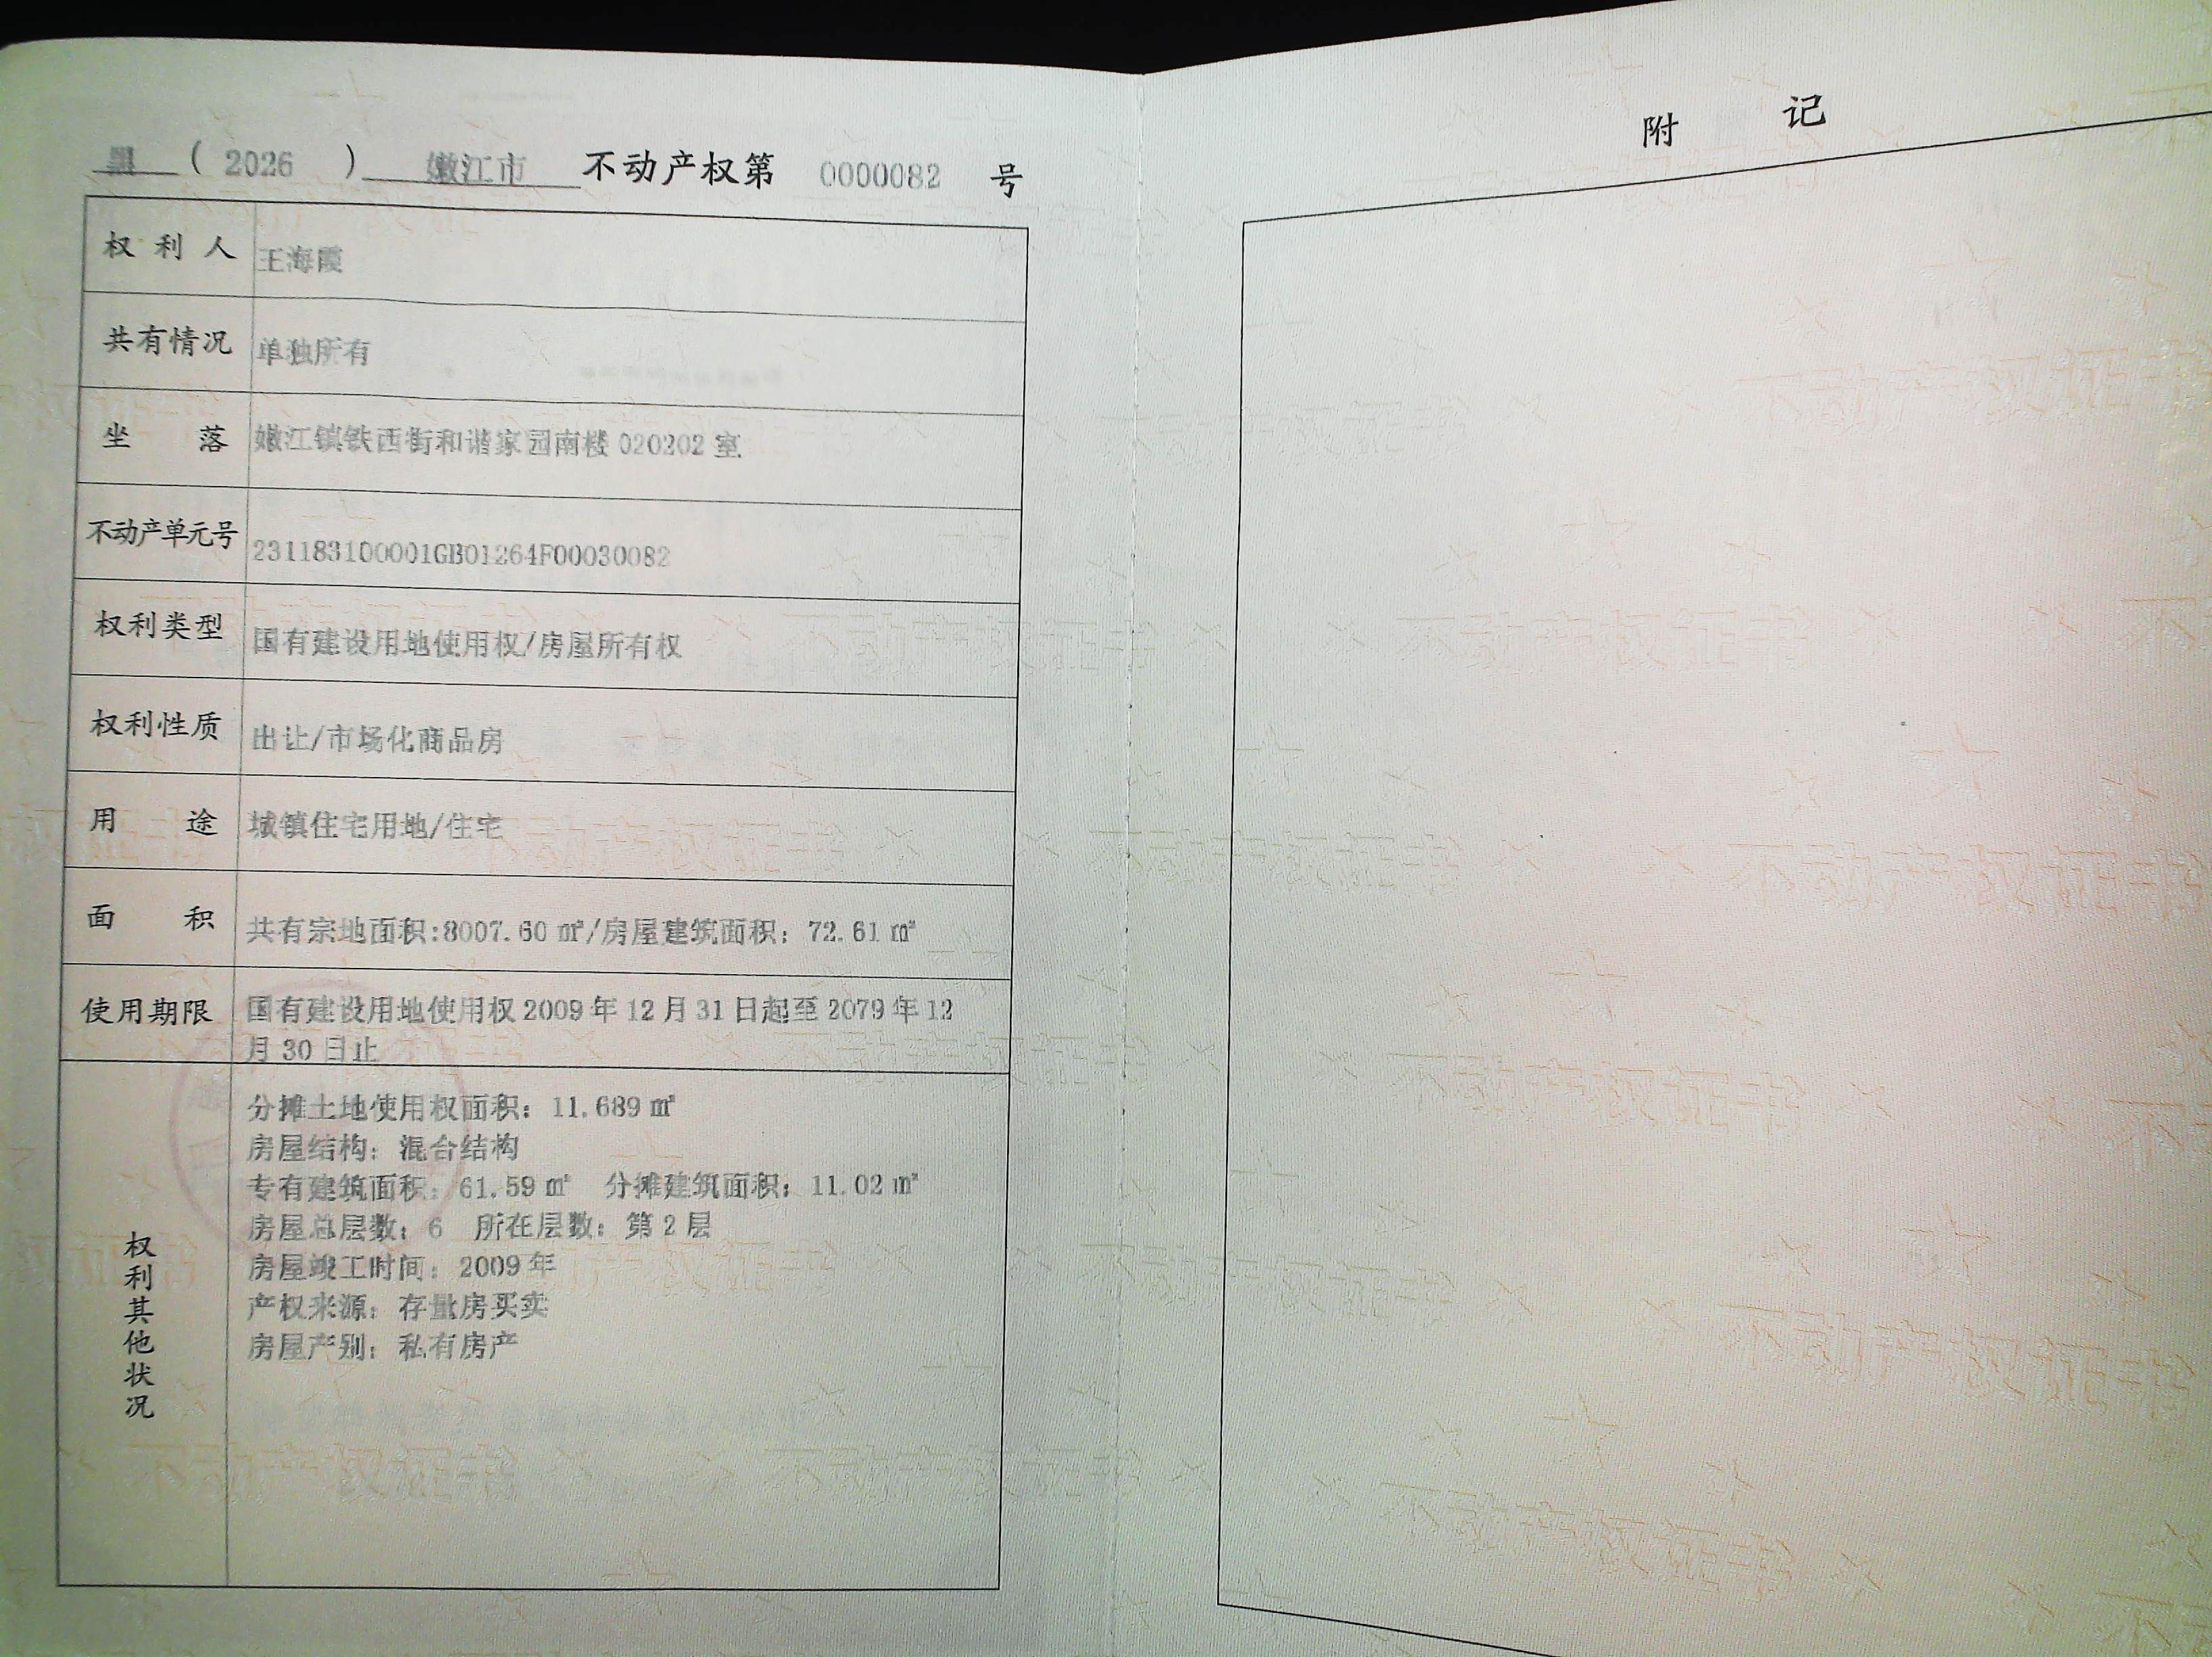 黑 ( 2026 ) 嫩江市 不动产权第 0000082 号
权利人 王海霞
共有情况 单独所有
坐落 嫩江镇铁西街和谐家园南楼 020202 室
不动产单元号 231183100001GB01264F00030082
权利类型 国有建设用地使用权/房屋所有权
权利性质 出让/市场化商品房
用途 城镇住宅用地/住宅
面积 共有宗地面积:8007.60 ㎡/房屋建筑面积：72.61 ㎡
使用期限 国有建设用地使用权 2009 年 12 月 31 日起至 2079 年 12
月 30 日止
权利其他状况
分摊土地使用权面积：11.689 ㎡
房屋结构：混合结构
专有建筑面积：61.59 ㎡ 分摊建筑面积：11.02 ㎡
房屋总层数：6 所在层数：第 2 层
房屋竣工时间：2009 年
产权来源：存量房买卖
房屋产别：私有房产
附记